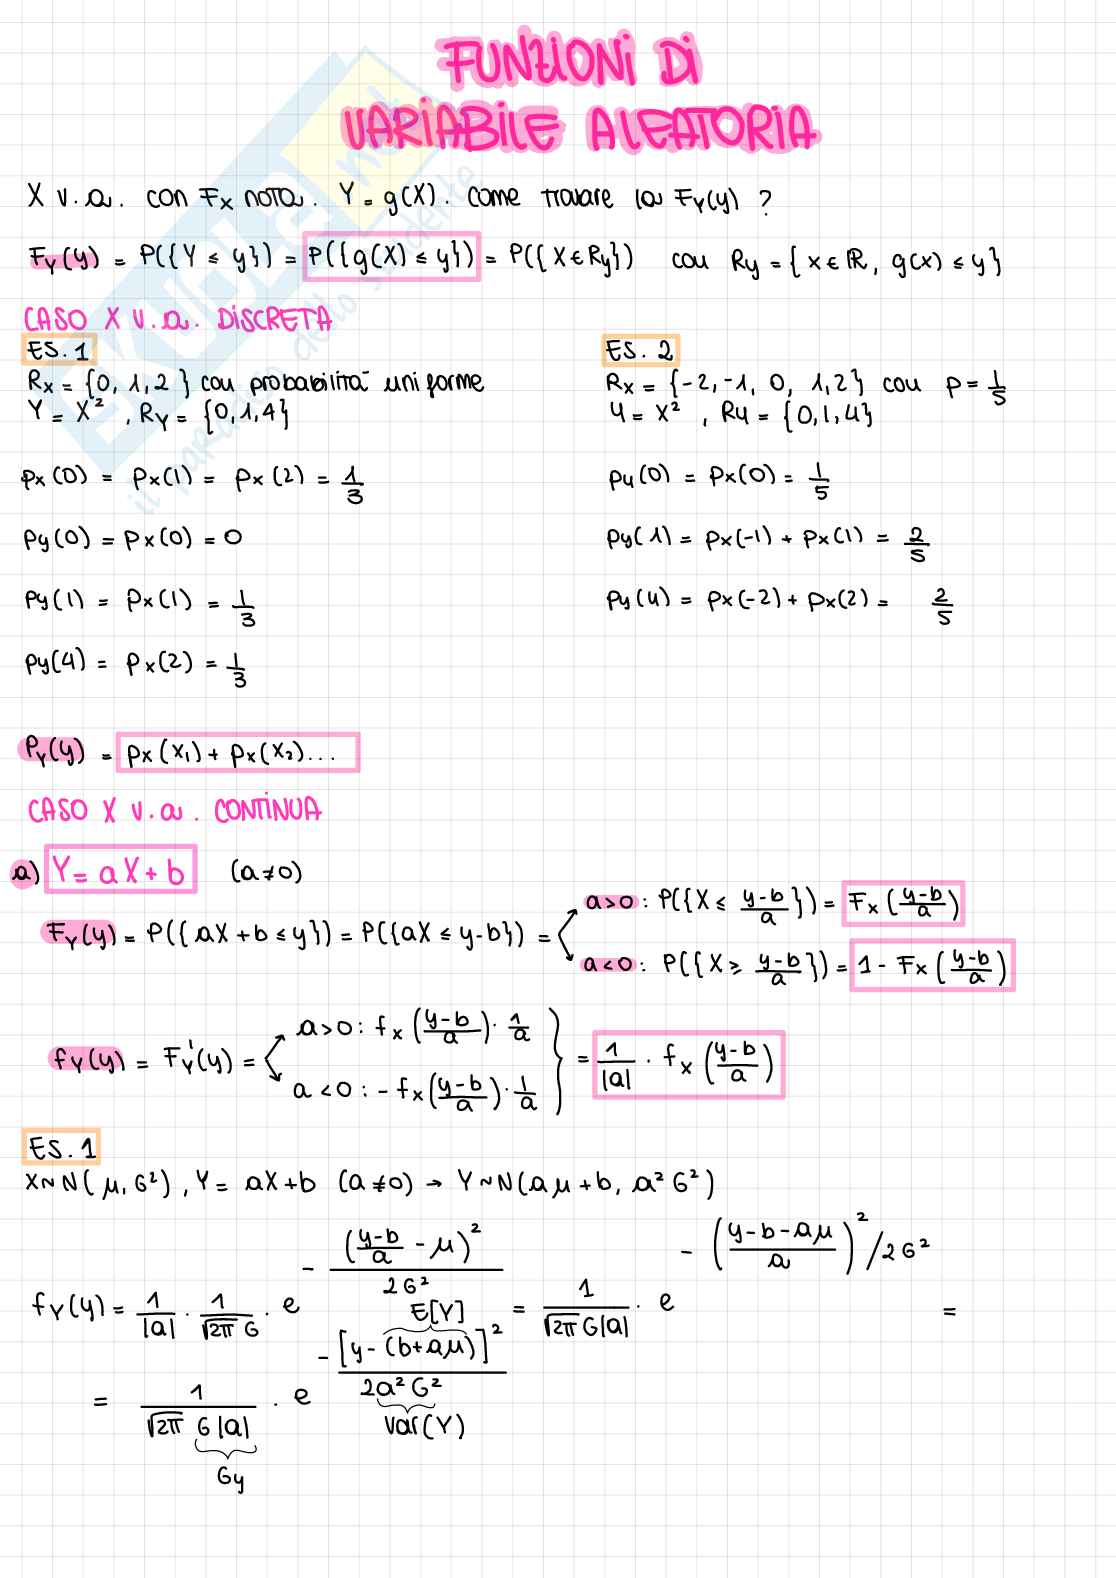 FUNZIONI DI
VARIABILE ALEATORIA
X v.a. con Fx nota. Y = g(X). Come trovare la F_Y(y) ?
F_Y(y) = P({Y ≤ y}) = P({g(X) ≤ y}) = P({X ∈ Ry}) con Ry = {x ∈ ℝ, g(x) ≤ y}
CASO X v.a. DISCRETA
ES. 1
Rx = {0, 1, 2} con probabilità uniforme
Y = X², R_Y = {0,1,4}
px(0) = px(1) = px(2) = 1/3
py(0) = px(0) = 0
py(1) = px(1) = 1/3
py(4) = px(2) = 1/3
ES. 2
Rx = {-2, -1, 0, 1, 2} con p = 1/5
Y = X², Ry = {0,1,4}
py(0) = px(0) = 1/5
py(1) = px(-1) + px(1) = 2/5
py(4) = px(-2) + px(2) = 2/5
P_Y(y) = px(x₁) + px(x₂)...
CASO X v.a. CONTINUA
a) Y = aX + b (a ≠ 0)
F_Y(y) = P({aX + b ≤ y}) = P({aX ≤ y-b}) =
a > 0: P({X ≤ (y-b)/a}) = Fx((y-b)/a)
a < 0: P({X ≥ (y-b)/a}) = 1 - Fx((y-b)/a)
f_Y(y) = F_Y'(y) =
a > 0: fx((y-b)/a) · 1/a
a < 0: - fx((y-b)/a) · 1/a
= 1/|a| · fx((y-b)/a)
ES. 1
X ~ N(μ, σ²), Y = aX + b (a ≠ 0) → Y ~ N(aμ + b, a²σ²)
f_Y(y) = 1/|a| · 1/(√2π σ) · e^(-((y-b)/a - μ)²/2σ²) = 1/(√2π σ|a|) · e^(-((y-b-aμ)/a)²/2σ²) =
E[Y]
= 1/(√2π σ|a|) · e^(-[y-(b+aμ)]²/2a²σ²)
Var(Y)
σy